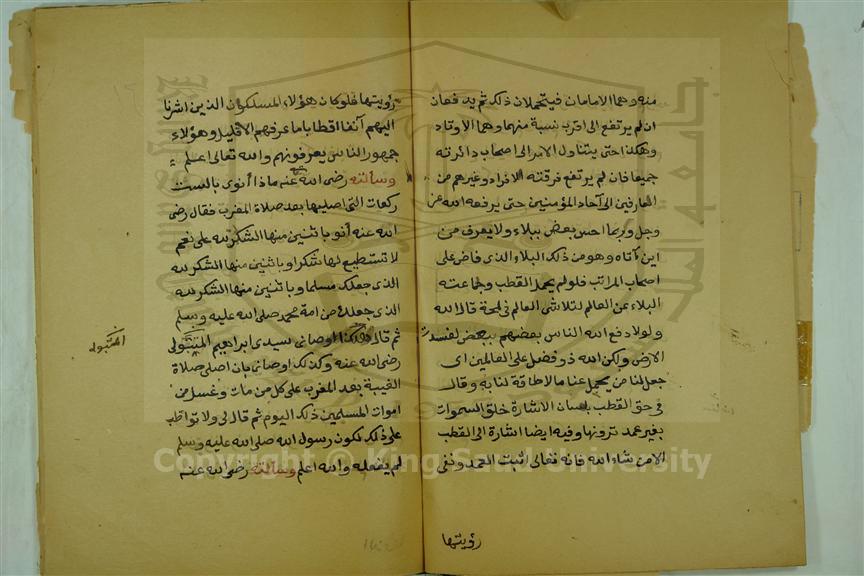 منه وهما الامامان فيتحملان ذلك ثم يدفعان
ان لم يرتفع الى اقرب نسبة منهما وهما الاوتاد
وهكذا حتى يتناول الامر الى اصحاب دائرته
جميعا فان لم يرتفع فرقته الافراد وغيرهم من
العارفين الى آحاد المؤمنين حتى يرفعه الله عز
وجل وربما احس بعض ببلاء ولا يعرف من
اين آتاه وهو من ذلك البلاء الذى فاض على
اصحاب المراتب فلو لم يحمل القطب وجماعته
البلاء عن العالم لتلاشى العالم فى لمحة قال الله
ولولا دفع الله الناس بعضهم ببعض لفسدت
الارض ولكن الله ذو فضل على العالمين اى
جعل لنا من يحمل عنا ما لا طاقة لنا به وقال
فى حق القطب بلسان الاشارة خلق السموات
بغير عمد ترونها وفيه ايضا اشارة الى القطب
الامن شاء الله فانه تعالى اثبت العمد ونفى
رؤيتها
رؤيتها فلو كان هؤلاء المسلكون الذين اشرنا
اليهم آنفا اقطابا ما عرفهم الا قليل وهؤلاء
جمهور الناس يعرفونهم والله تعالى اعلم
وسألته رضى الله عنه ماذا أنوى بالست
ركعات التى اصليها بعد صلاة المغرب فقال رضى
الله عنه أنو باثنين منها الشكر لله على نعم
لا تستطيع لها شكرا وباثنين منها الشكر لله
الذى جعلك مسلما وباثنين منها الشكر لله
الذى جعلك من امة محمد صلى الله عليه وسلم
ثم قال هكذا اوصانى سيدى ابراهيم المتبولى
رضى الله عنه وكذلك اوصانى بان اصلى صلاة
الغيبة بعد المغرب على كل من مات وغسل من
اموات المسلمين ذلك اليوم ثم قال لى ولا تواظب
على ذلك لكون رسول الله صلى الله عليه وسلم
لم يفعله والله اعلم وسألته رضى الله عنه
المتبولى
Copyright © King Saud University